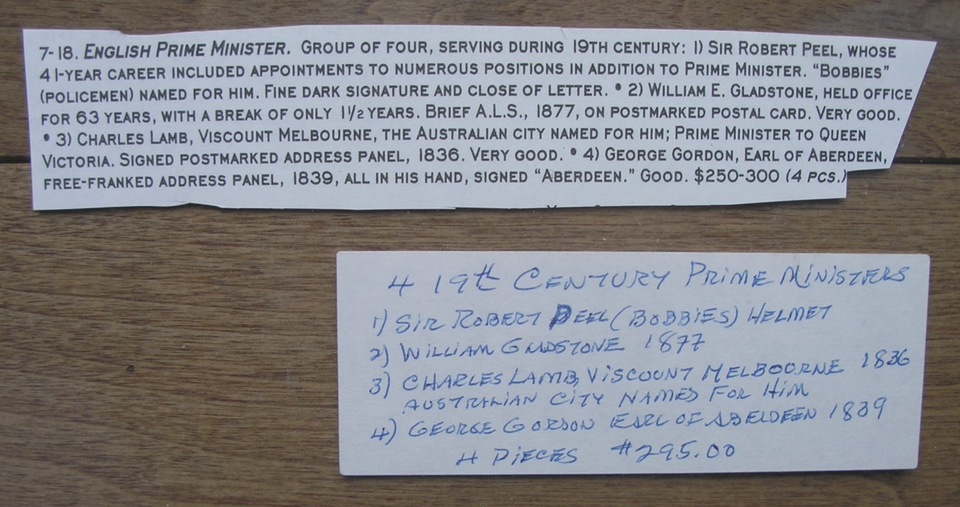 7-18. ENGLISH PRIME MINISTER. GROUP OF FOUR, SERVING DURING 19TH CENTURY: 1) SIR ROBERT PEEL, WHOSE
41-YEAR CAREER INCLUDED APPOINTMENTS TO NUMEROUS POSITIONS IN ADDITION TO PRIME MINISTER. “BOBBIES”
(POLICEMEN) NAMED FOR HIM. FINE DARK SIGNATURE AND CLOSE OF LETTER. • 2) WILLIAM E. GLADSTONE, HELD OFFICE
FOR 63 YEARS, WITH A BREAK OF ONLY 1½ YEARS. BRIEF A.L.S., 1877, ON POSTMARKED POSTAL CARD. VERY GOOD.
• 3) CHARLES LAMB, VISCOUNT MELBOURNE, THE AUSTRALIAN CITY NAMED FOR HIM; PRIME MINISTER TO QUEEN
VICTORIA. SIGNED POSTMARKED ADDRESS PANEL, 1836. VERY GOOD. • 4) GEORGE GORDON, EARL OF ABERDEEN,
FREE-FRANKED ADDRESS PANEL, 1839, ALL IN HIS HAND, SIGNED “ABERDEEN.” GOOD. $250-300 (4 PCS.)
4 19th CENTURY PRIME MINISTERS
1) SIR ROBERT PEEL (BOBBIES) HELMET
2) WILLIAM GLADSTONE 1877
3) CHARLES LAMB, VISCOUNT MELBOURNE 1836
AUSTRALIAN CITY NAMES FOR HIM
4) GEORGE GORDON EARL OF ABELDEEN 1839
4 PIECES $295.00